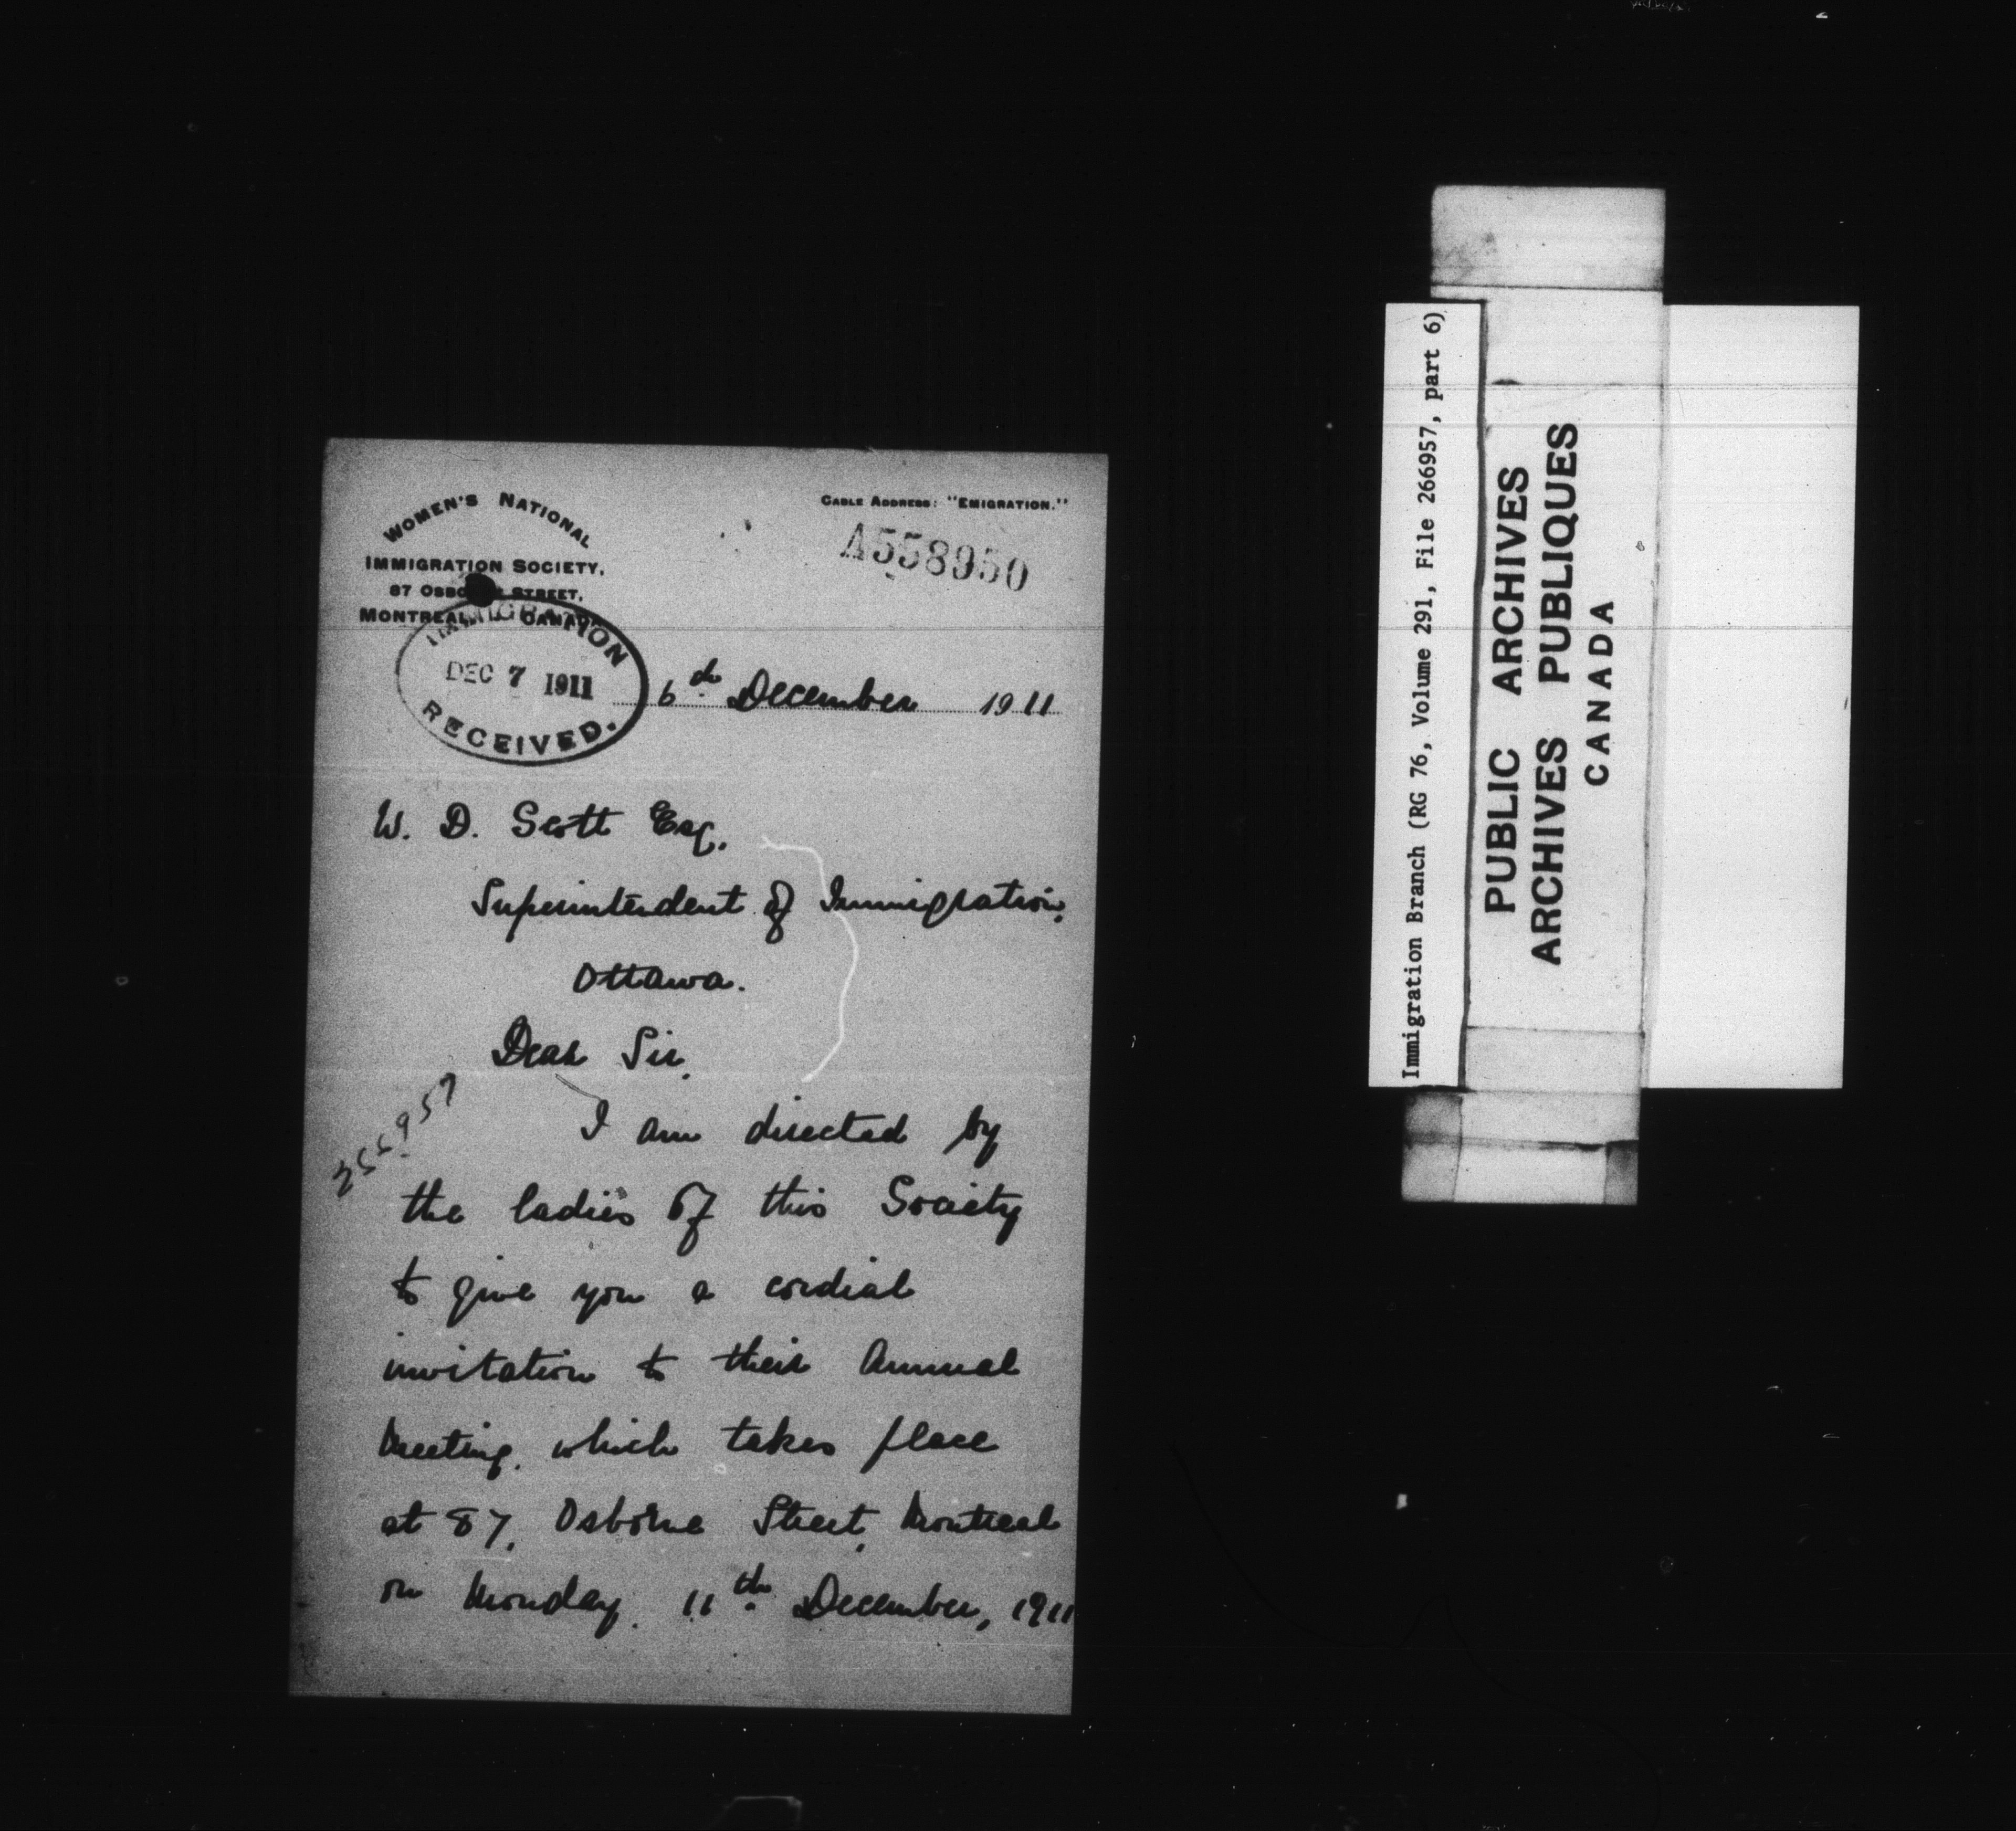 WOMEN'S NATIONAL
IMMIGRATION SOCIETY,
87 OSBORNE STREET,
MONTREAL, CANADA
CABLE ADDRESS: "EMIGRATION."
A558950
IMMIGRATION
DEC 7 1911
RECEIVED.
6th December 1911
W. D. Scott Esq.
Superintendent of Immigration,
Ottawa.
Dear Sir,
266957
I am directed by
the ladies of this Society
to give you a cordial
invitation to their Annual
Meeting, which takes place
at 87, Osborne Street, Montreal
on Monday, 11th December, 1911
Immigration Branch (RG 76, Volume 291, File 266957, part 6)
PUBLIC ARCHIVES
ARCHIVES PUBLIQUES
CANADA